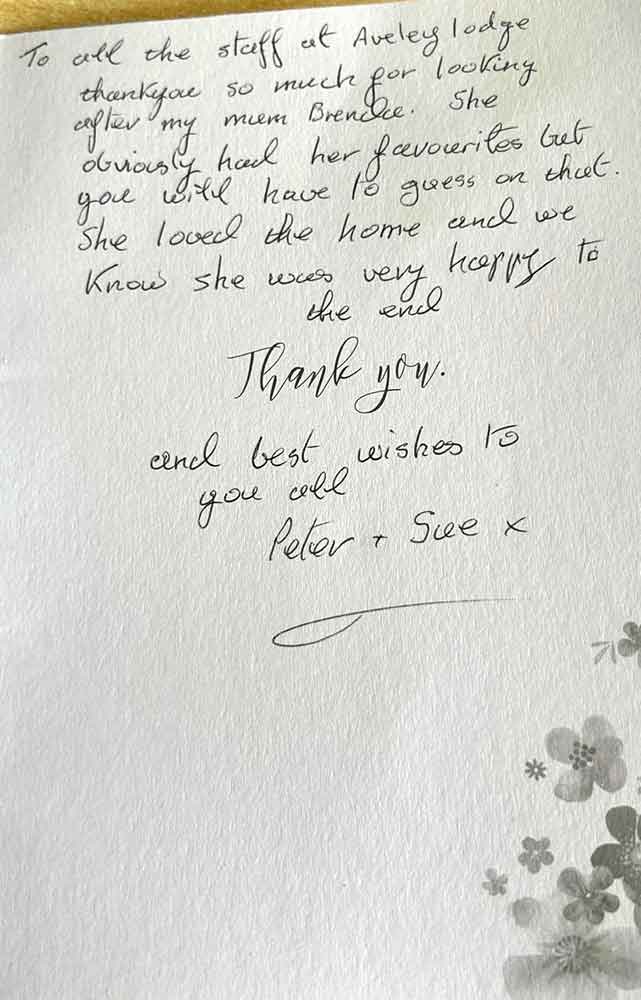 To all the staff at Aveley lodge
thankyou so much for looking
after my mum Brenda. She
obviously had her favourites but
you will have to guess on that.
She loved the home and we
know she was very happy to
the end
Thank you.
and best wishes to
you all
Peter + Sue x